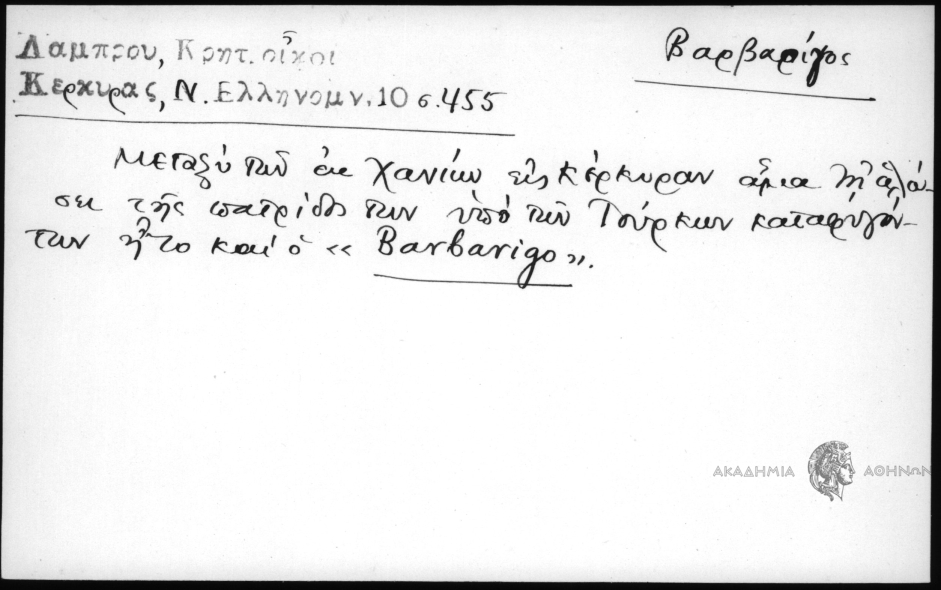 Λαμπρου, Κρητ. οἶκοι
Κερκυρας, Ν. Ελληνομν. 10 σ. 455
Βαρβαρίγος
Μεταξύ τῶν ἐκ Χανίων εἰς Κέρκυραν ἅμα τῇ ἁλώ-
σει τῆς πατρίδος των ὑπό τῶν Τούρκων καταφυγόν-
των ἦτο καί ὁ « Barbarigo ».
ΑΚΑΔΗΜΙΑ ΑΘΗΝΩΝ